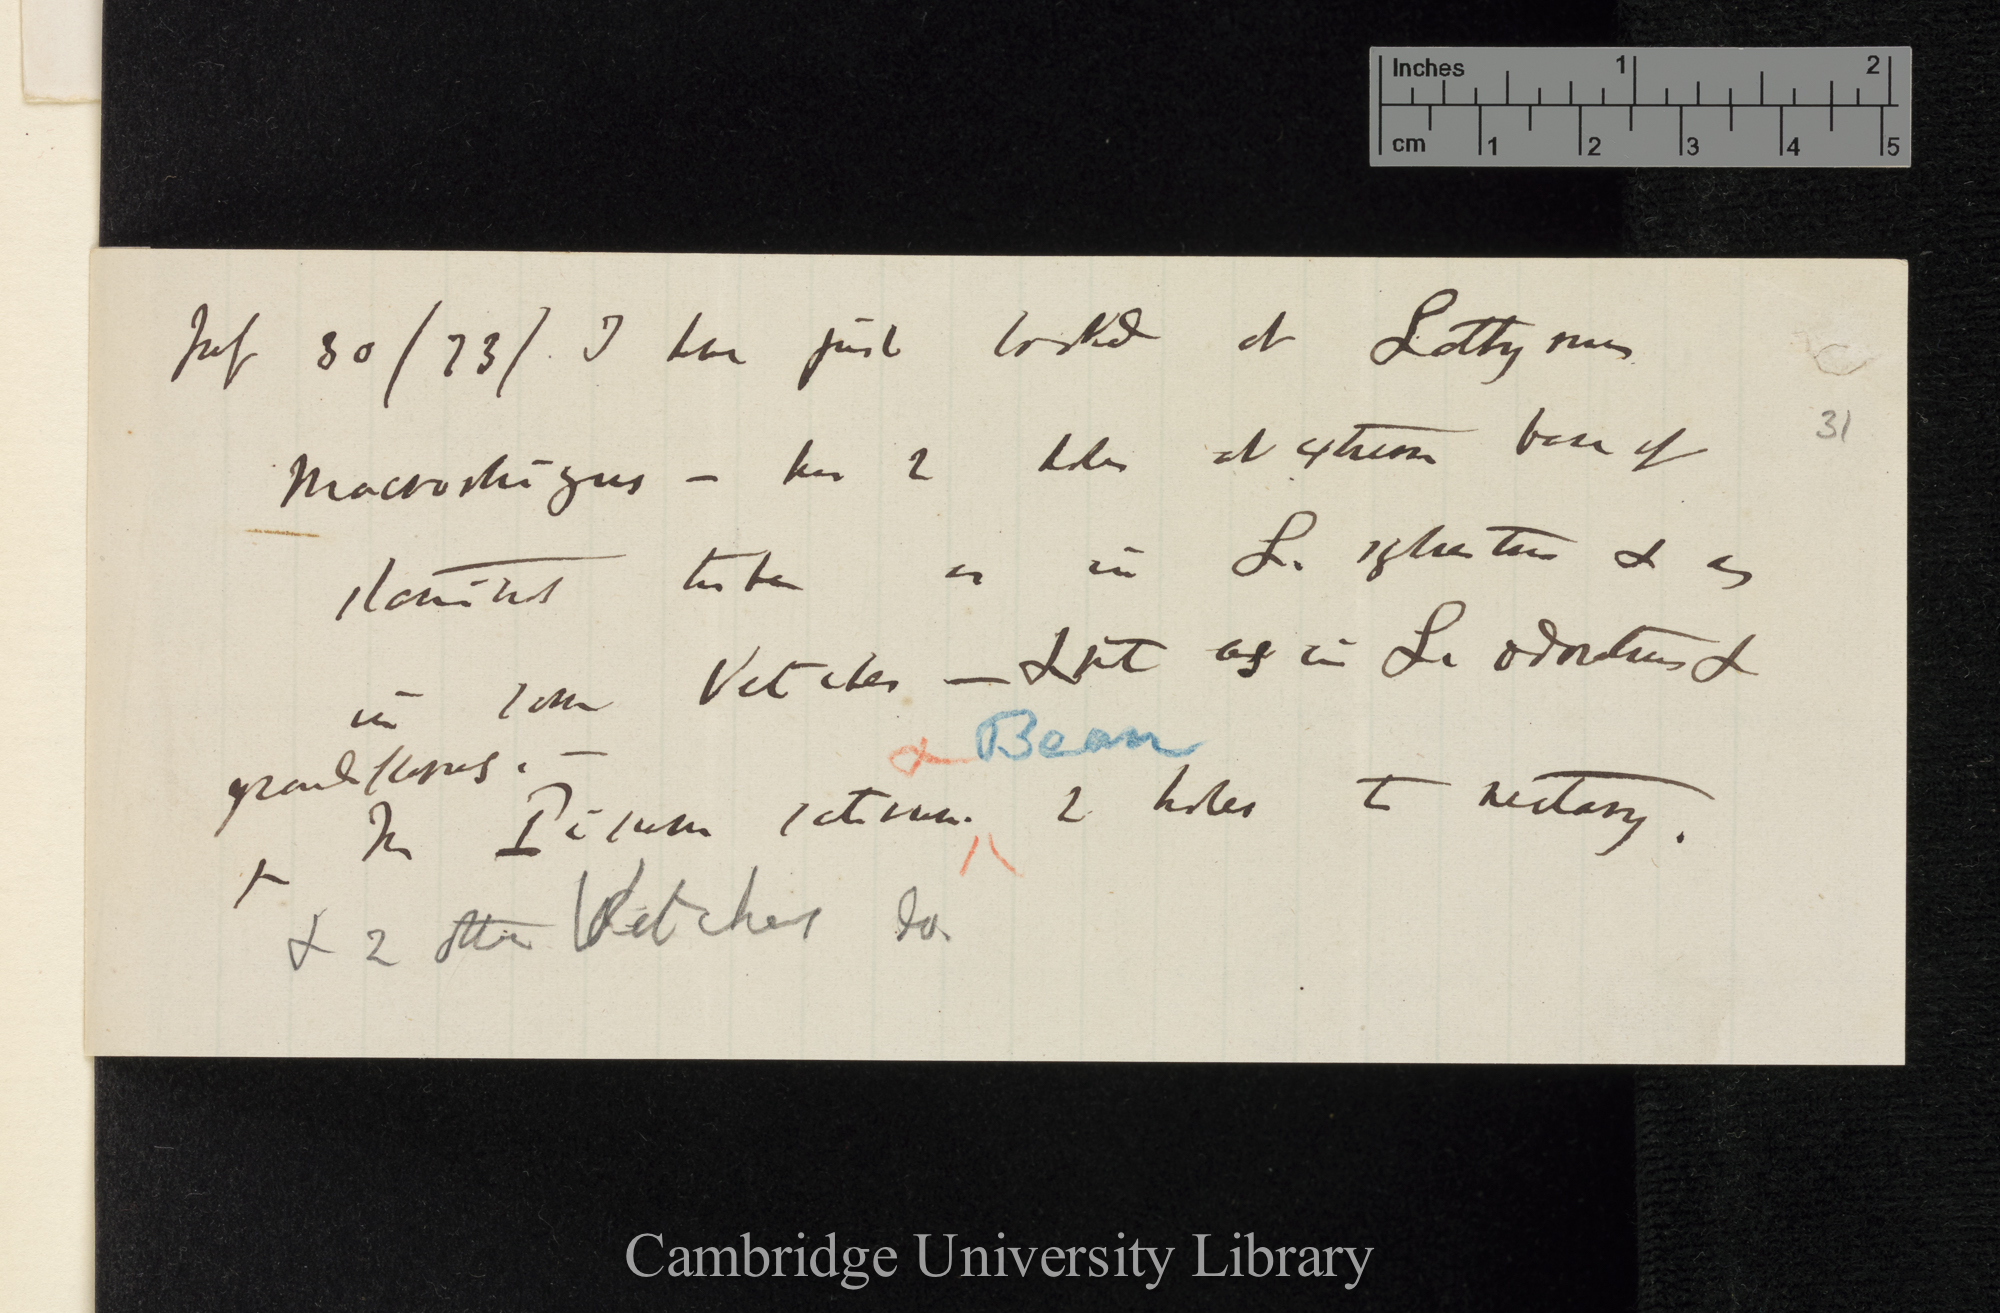 Inches 1 2
cm 1 2 3 4 5
July 30/73/. I have just looked at Lathyrus
31
macrorhizus — has 2 holes at extreme base of
staminal tube as in L. sylvestris & as
in some Vetches — & not as in L. odoratus &
grandiflorus. —
& Bean
In Pisum sativum. 2 holes to nectary.
& 2 other Vetches do.
Cambridge University Library